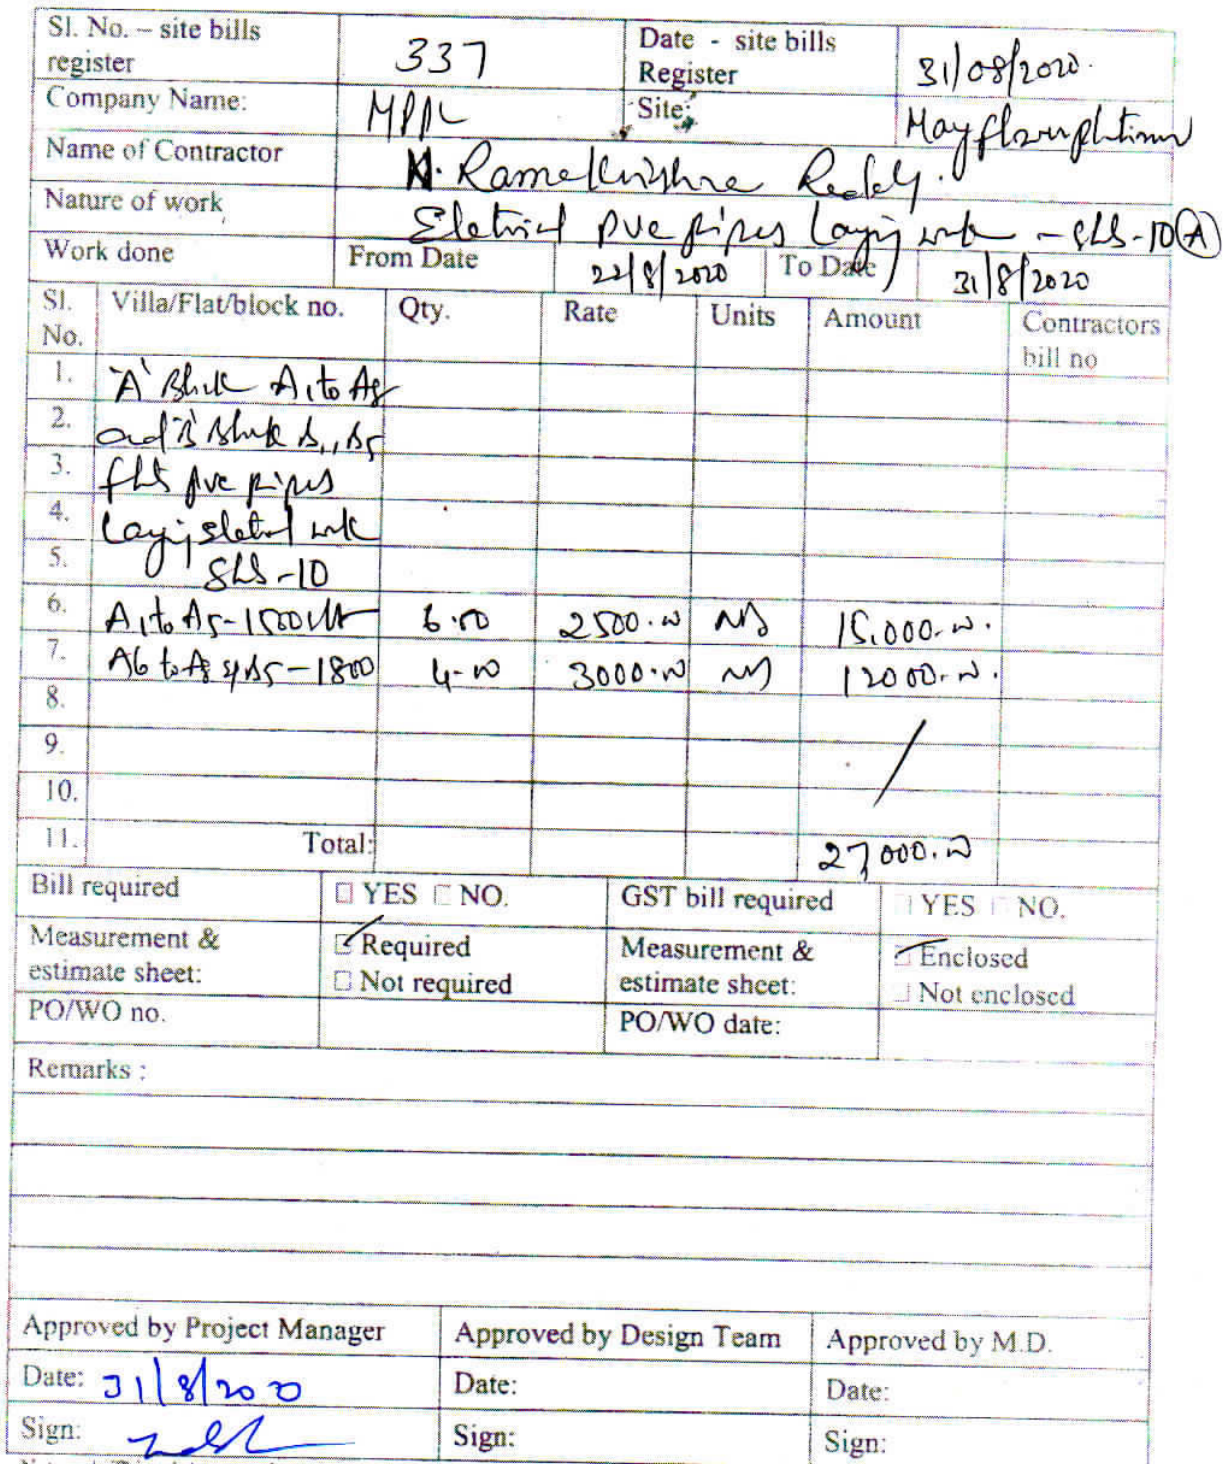 Sl. No. – site bills register 337 Date - site bills Register 31/08/2020.
Company Name: MPPL Site:
Name of Contractor N. Ramakrishna Reddy.
Nature of work pvc pipes Laying - SLS-10 (A)
Work done From Date 22/8/2020 To Date 31/8/2020
Sl. No. Villa/Flat/block no. Qty. Rate Units Amount Contractors bill no
1. 'A' Block A1 to A8
2. and 'B' Block B1, B5
3. pvc pipes
4. Laying
5. SLS-10
6. A1 to A5-1500 6.00 2500.00 15,000.00.
7. A6 to A8 B5-1800 4.00 3000.00 12000.00.
8.
9.
10.
11. Total: 27,000.00
Bill required YES NO. GST bill required YES NO.
Measurement & estimate sheet: Required Measurement & estimate sheet: Enclosed
Not required Not enclosed
PO/WO no. PO/WO date:
Remarks :
Approved by Project Manager Approved by Design Team Approved by M.D.
Date: 31/8/2020 Date: Date:
Sign: Sign: Sign: